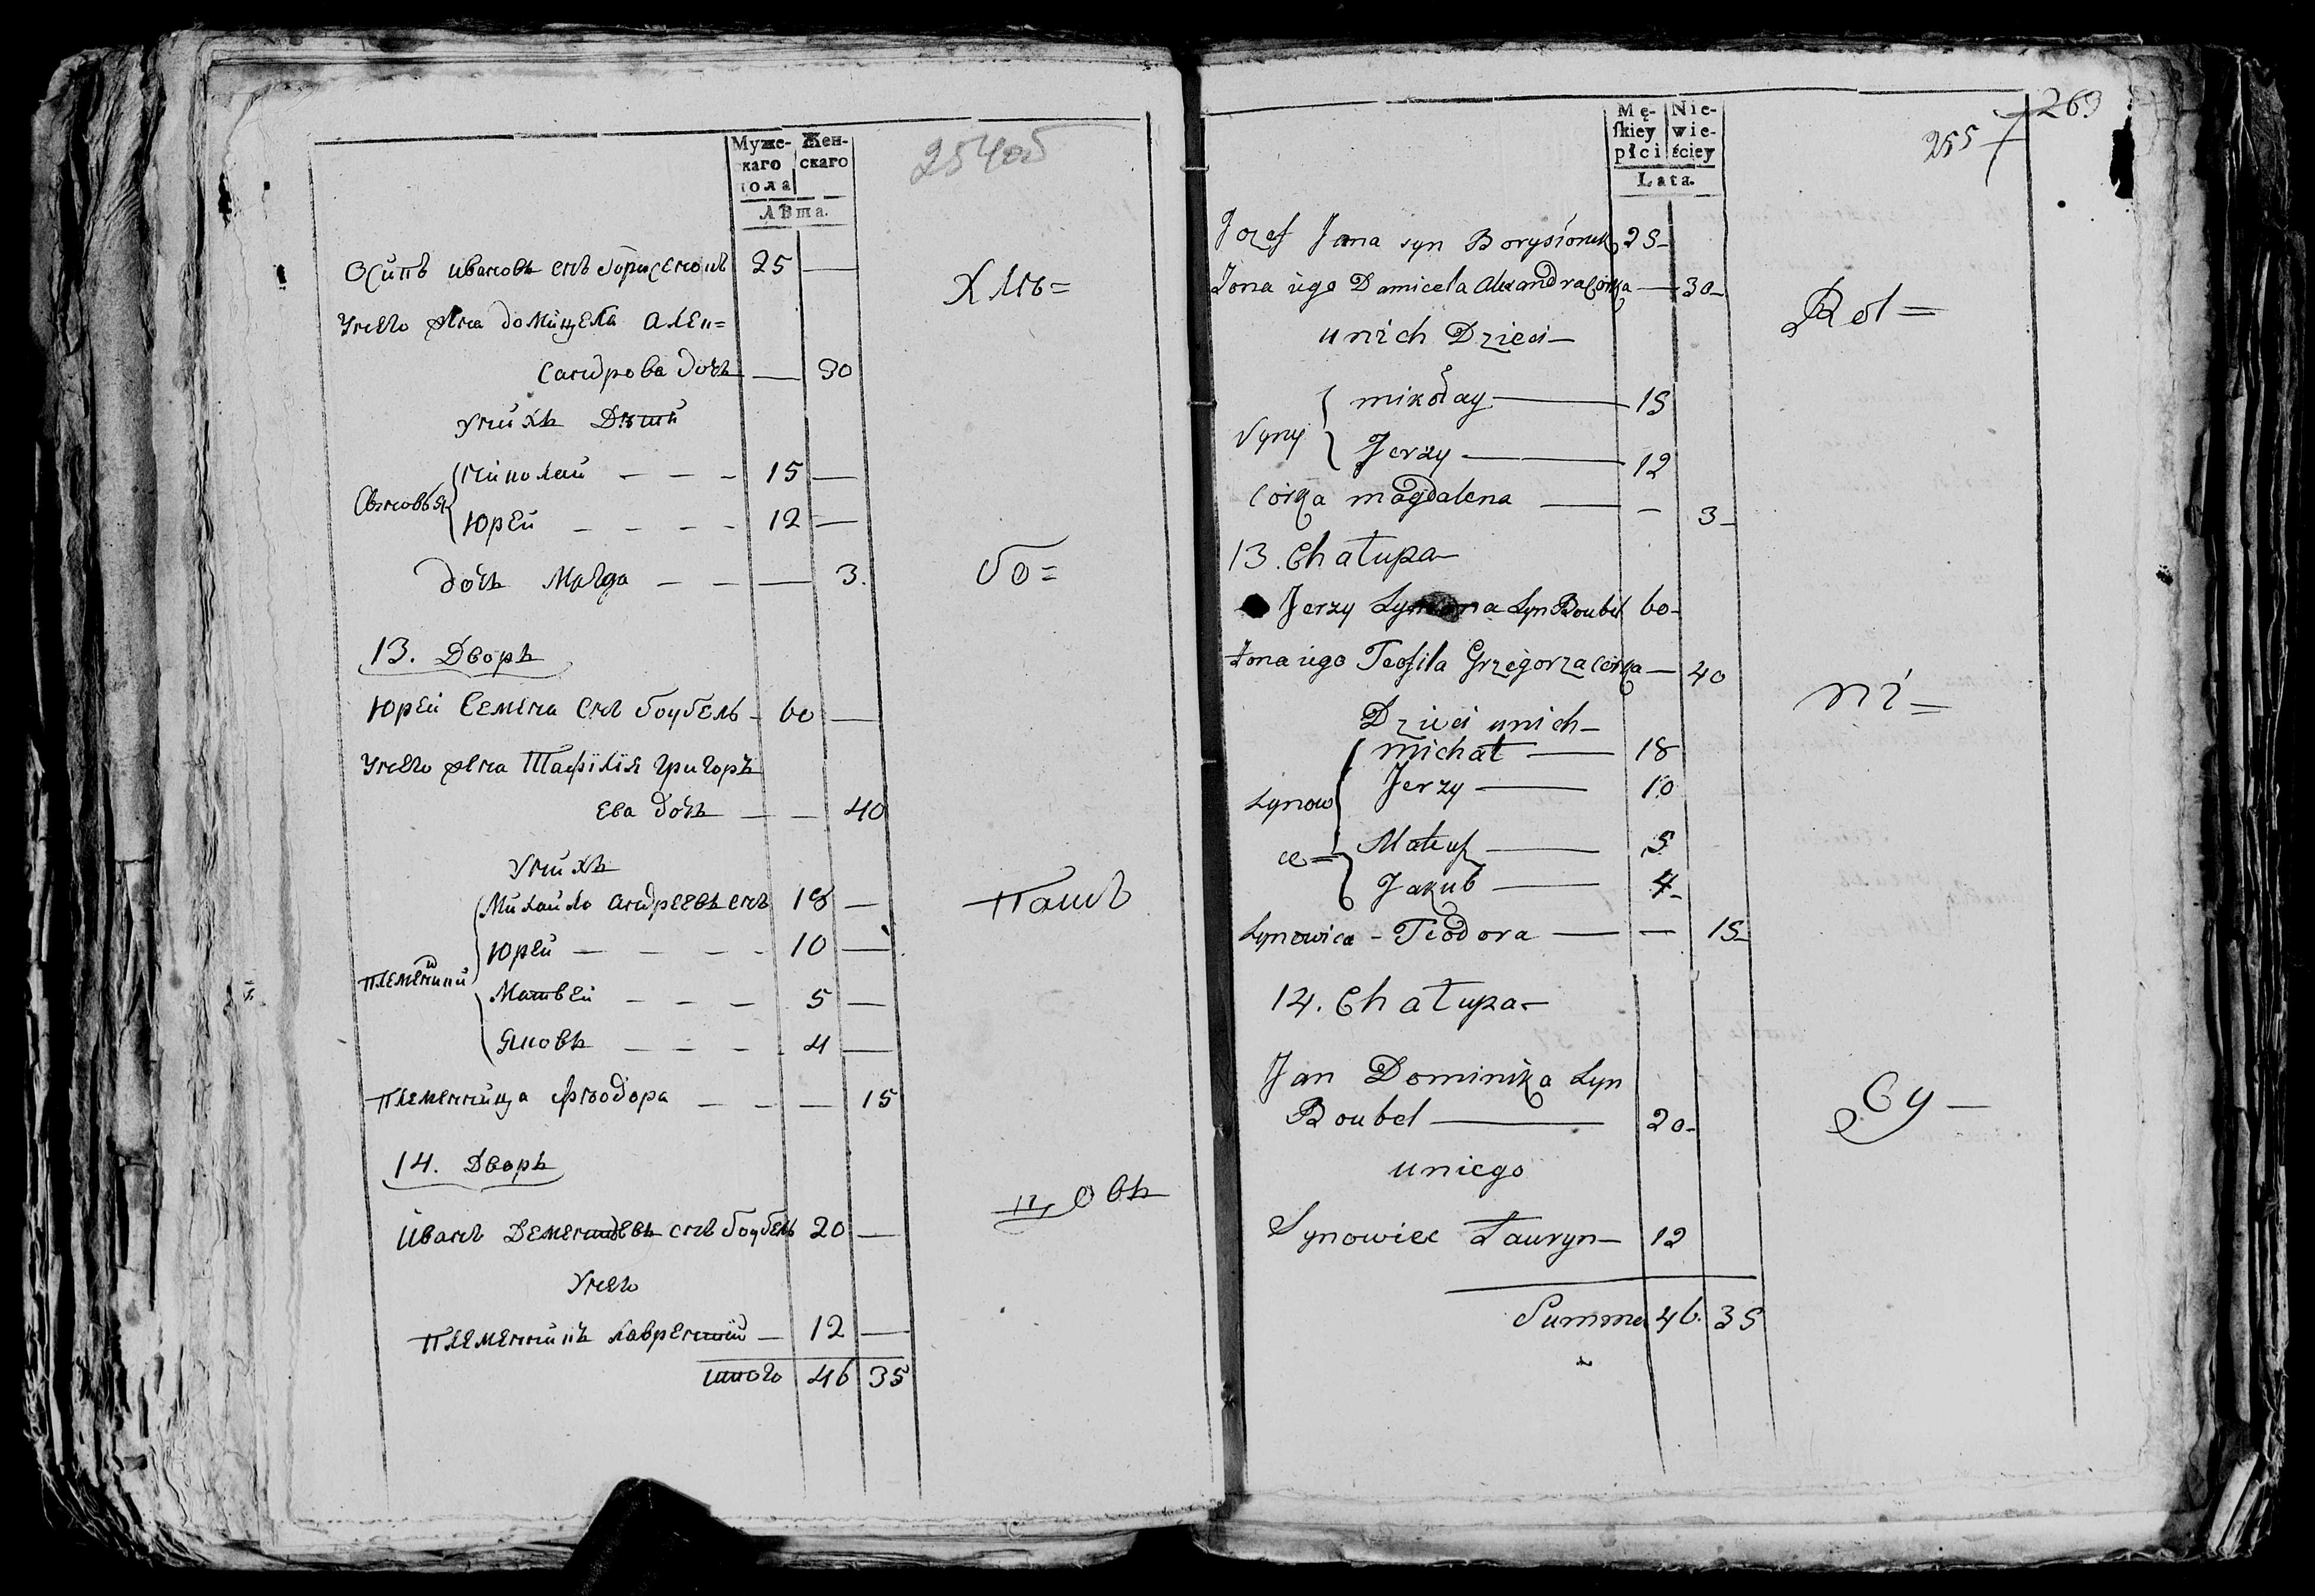 Муже-
скаго
пола
Жен-
скаго
Лѣта.
254об
Осипъ Ивановъ снъ Борисенокъ 25 —
Унего жена Домицела Алек=
Сандрова дочь — 30
Унихъ Дѣти
Сыновья
Николай — — — 15 —
Юрей — — — — 12 —
дочь Магда — — — 3.
13. Дворъ
Юрей Семена снъ Боубель — 60 —
Унего жена Тафилiя Григорь
ева дочь — — 40
Унихъ
Племяники
Михайло Андреевъ снъ 18 —
Юрей — — — — 10 —
Матвей — — — 5 —
Яковъ — — — — 4 —
Племенница Феодора — — — 15
14. Дворъ
Иванъ Дементьевъ снъ Боубель 20 —
Унего
Племенникъ Лаврентий — 12 —
итого 46 35
Хлѣ=
бо=
Паш
цовъ
Mę-
skiey
płci
Nie-
wie-
ściey
Lata.
255
263
Jozef Jana syn Borysionek 25–
Zona iego Damicela Alexandra Corka — 30–
unich Dzieci–
Syny
mikołay — 15
Jerzy — 12
Corka magdalena — – 3–
13. Chałupa–
Jerzy Symona Syn Boubel 60–
Zona iego Teofila Grzegorza Corka — 40
Dzieci unich–
Synow
ce =
michał — 18
Jerzy — 10
Mateusz — 5
Jakub — 4–
Synowica – Teodora — — 15–
14. Chałupa–
Jan Dominika Syn
Boubel — 20–
uniego
Synowiec Łauryn– 12
Summa 46. 35
Rol=
ni=
Cy –